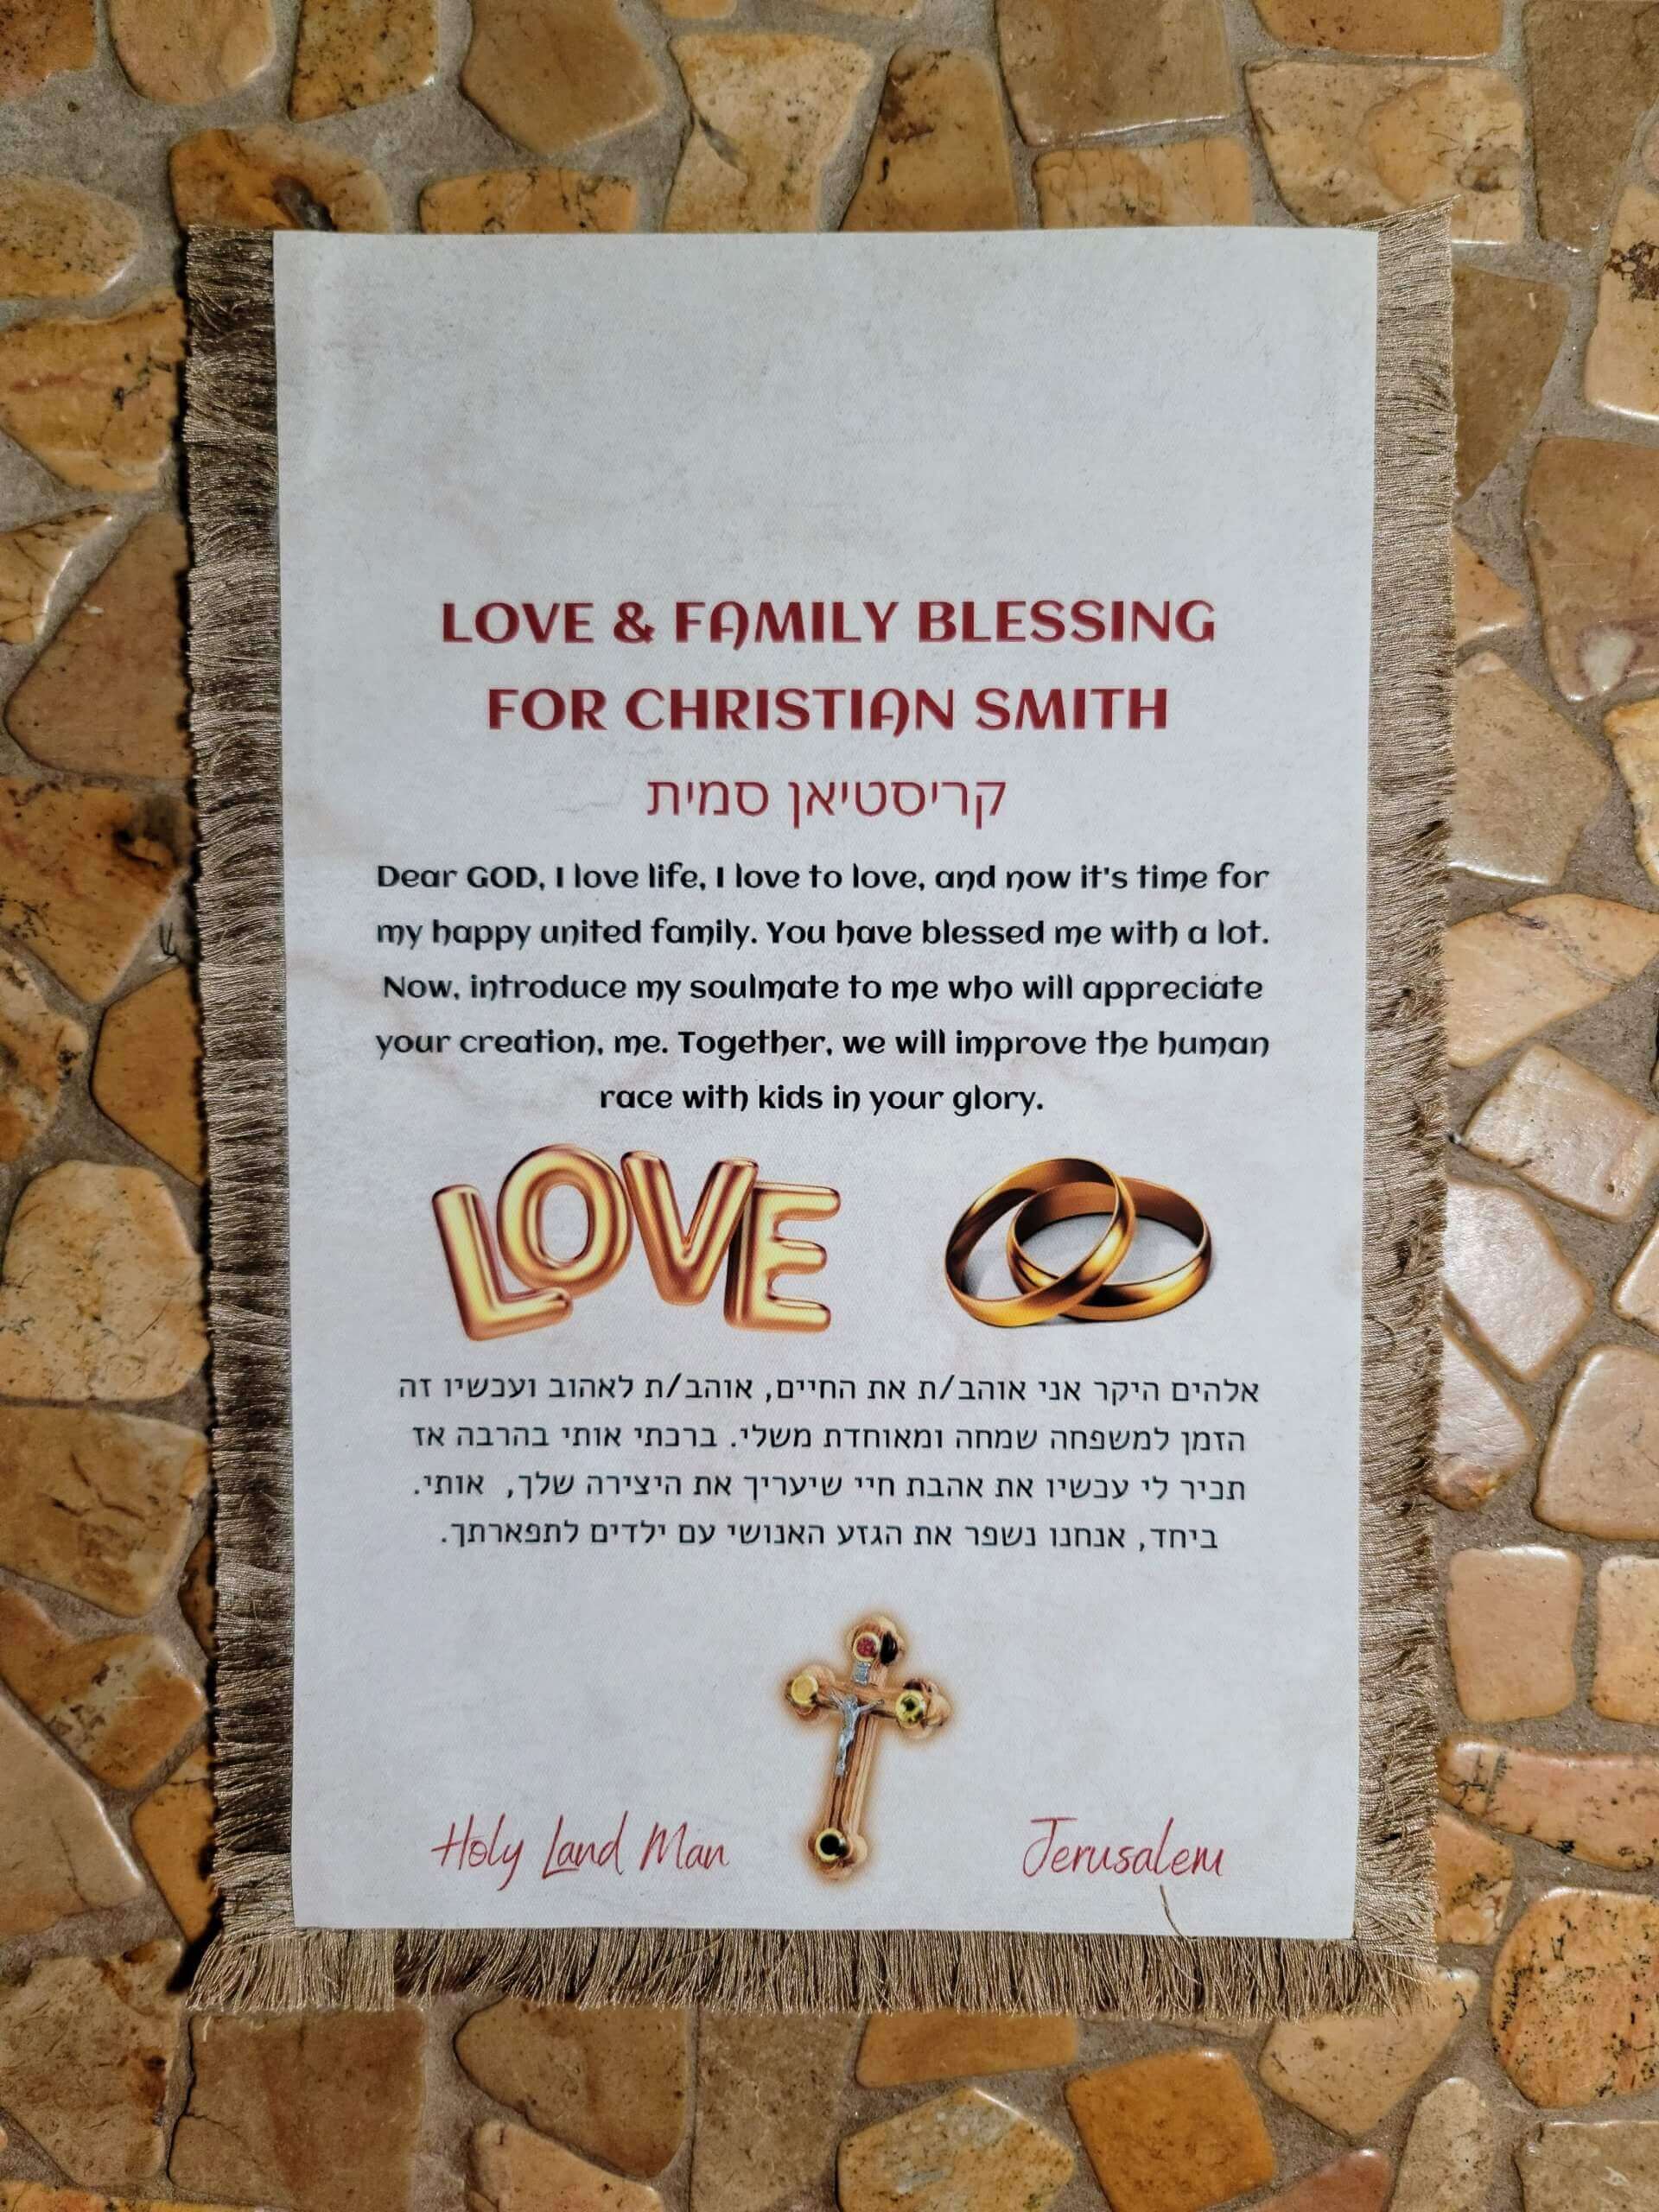 LOVE & FAMILY BLESSING
FOR CHRISTIAN SMITH
קריסטיאן סמית
Dear GOD, I love life, I love to love, and now it's time for
my happy united family. You have blessed me with a lot.
Now, introduce my soulmate to me who will appreciate
your creation, me. Together, we will improve the human
race with kids in your glory.
LOVE
אלהים היקר אני אוהב/ת את החיים, אוהב/ת לאהוב ועכשיו זה
הזמן למשפחה שמחה ומאוחדת משלי. ברכתי אותי בהרבה אז
תכיר לי עכשיו את אהבת חיי שיעריך את היצירה שלך, אותי.
ביחד, אנחנו נשפר את הגזע האנושי עם ילדים לתפארתך.
Holy Land Man Jerusalem